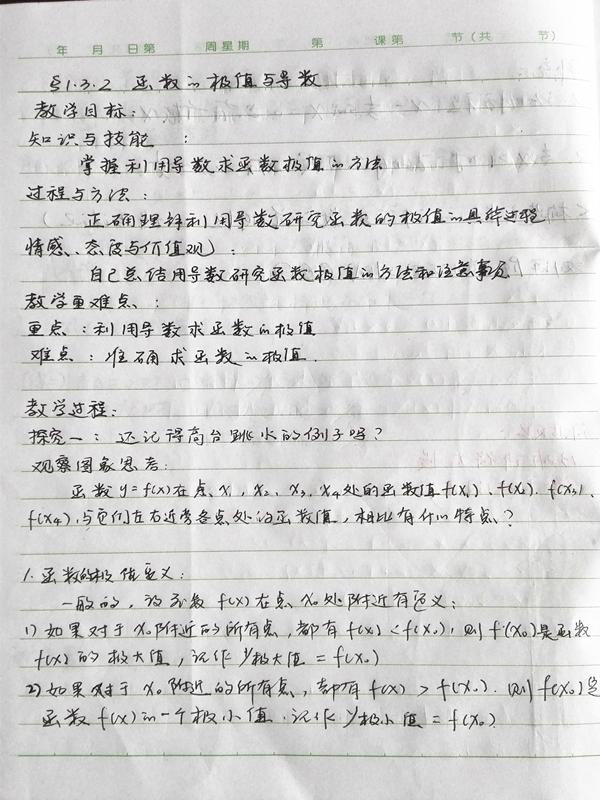 年 月 日第 周星期 第 课第 节(共 节)
§1.3.2 函数的极值与导数
教学目标:
知识与技能 :
掌握利用导数求函数极值的方法
过程与方法:
正确理解利用导数研究函数的极值的具体过程
情感、态度与价值观):
自己总结用导数研究函数极值的方法和注意事项
教学重难点:
重点:利用导数求函数的极值
难点:准确求函数的极值.
教学过程:
探究一:还记得高台跳水的例子吗?
观察图象思考:
函数y=f(x)在点x₁、x₂、x₃、x₄处的函数值f(x₁)、f(x₂)、f(x₃)、
f(x₄),与它们左右近旁各点处的函数值,相比有什么特点?
1.函数的极值定义:
一般的,设函数f(x)在点x₀处附近有定义:
1)如果对于x₀附近的所有点,都有f(x)<f(x₀),则f(x₀)是函数
f(x)的极大值,记作y极大值=f(x₀)
2)如果对于x₀附近的所有点,都有f(x)>f(x₀).则f(x₀)是
函数f(x)的一个极小值.记作y极小值=f(x₀)